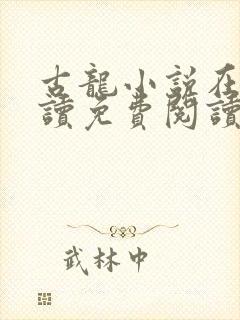 古龍小說在
讀免費閱讀
武林中